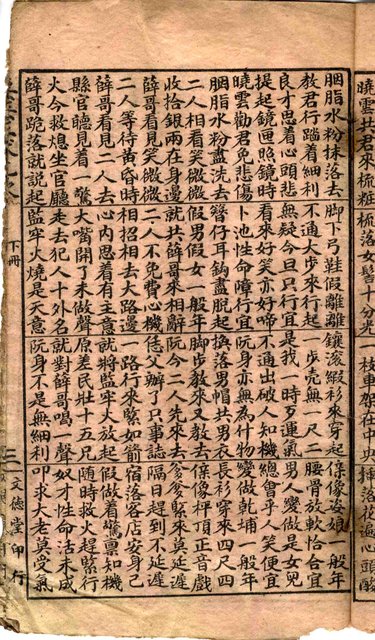 曉雲共君來梳粧梳落女髻十分光一枝車架在中央揷落花遍心頭酸
胭脂水粉抹落去脚下弓鞋假離離鑲滾緞衫來穿起保像姿娘一般年
敎君行踏着細利不通大步來行起一步売無一尺二腰骨放軟恰合宜
良才思着心頭悲無疑今旦只行宜是找一時歹運氣男人變做是女兒
提起鏡匣照鏡時看來好笑亦好啼不通出破人知機總會乎人笑便宜
曉雲勸君免悲傷卜池性命障行宜阮身亦無為什物變做乾埔一般年
胭脂水粉盡洗去簪仔耳鈎盡脫起換落男帽共男衣長衫穿來四尺四
二人相看笑微微假男假女一般年脚步敎來又敎去保像枰頂正音戲
收拾銀兩在身邊就共薛哥來相辭阮今二人先來去爹爹緊來莫延遲
薛哥看見笑微微二人不免費心機恁父辦了只事誌隔日趕到不延遲
二人等待黃昏時相招相去大路邊一路行來緊如箭宿落客店安身己
薛哥看見二人去心內思着有主意就將監牢火放起假做着驚禀知機
縣官聽見着一驚大嘴開了未做聲原差民壯十五兄隨時救火趕緊行
火今救熄坐官廳走去犯人十外名就對薛哥喝一聲奴才性命活未成
薛哥跪落就說起監牢火燒是天意阮身不是無細利叩求大老莫受氣
下冊
三
文德堂印行